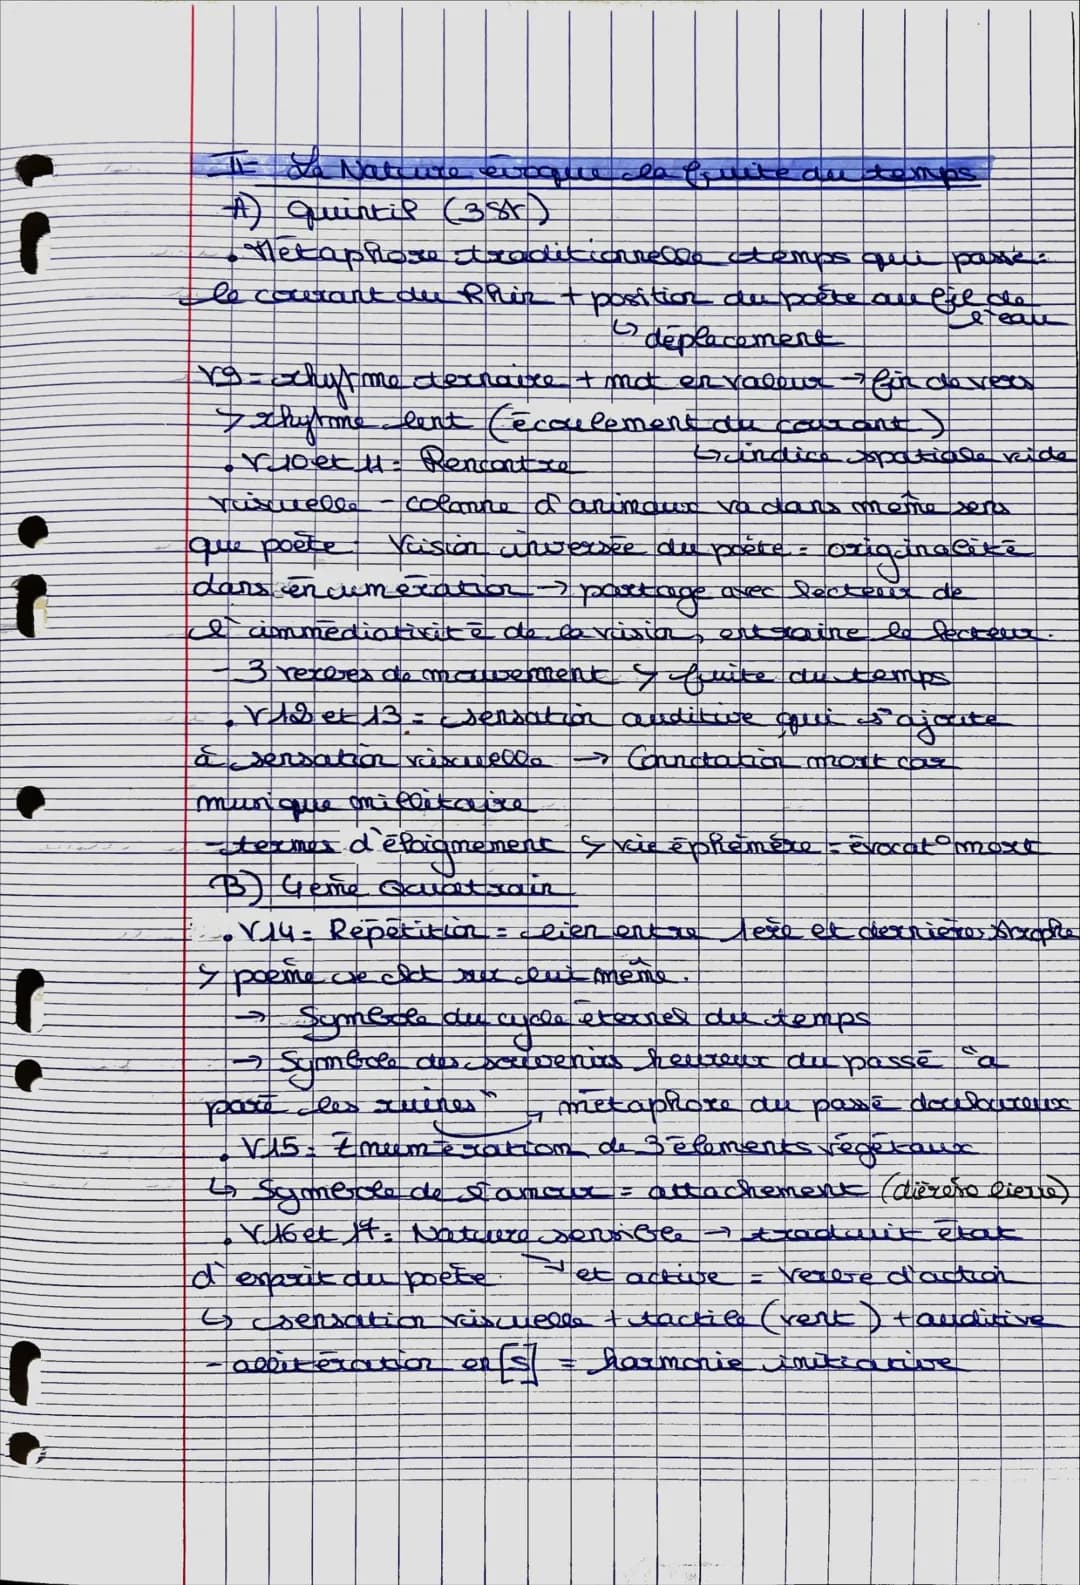 II- La Nature évoque la fuite du temps
A) Quintil (3 str)
. Métaphore traditionnelle temps qui passe =
le courant du Rhin + position du poète au fil de
l'eau
↳ déplacement
V9 = rhytme ternaire + mot en valeur → fin de vers
> rhytme lent (écoulement du courant)
. V10 et 11 = Rencontre ↳ indice spatiale vide
visuelle - colonne d'animaux va dans même sens
que poète. Vision inversée du poète = originalité
dans énumération → partage avec lecteur de
l'immédiativité de la vision, entraine le lecteur.
- 3 verbes de mouvement > fuite du temps
. V12 et 13 = sensation auditive qui s'ajoute
à sensation visuelle → Connotation mort car
musique millitaire
- termes d'éloignement > vie éphémère = évocat° mort
B) 4ème Quatrain
. V14 = Répétition = lien entre 1ère et dernière strophe
> poème se clot sur lui même.
→ Symbole du cycle éternel du temps
→ Symbole des souvenirs heureux du passé "a
paré les ruines" → métaphore du passé douloureux
. V15 = Énumération de 3 éléments végétaux
↳ Symbole de l'amour = attachement (dièrèse lierre)
. V16 et 17 = Nature sensible → traduit état
d'esprit du poète. → et active = verbe d'action
↳ sensation visuelle + tactile (vent) + auditive
- allitération en [s] = harmonie initiative